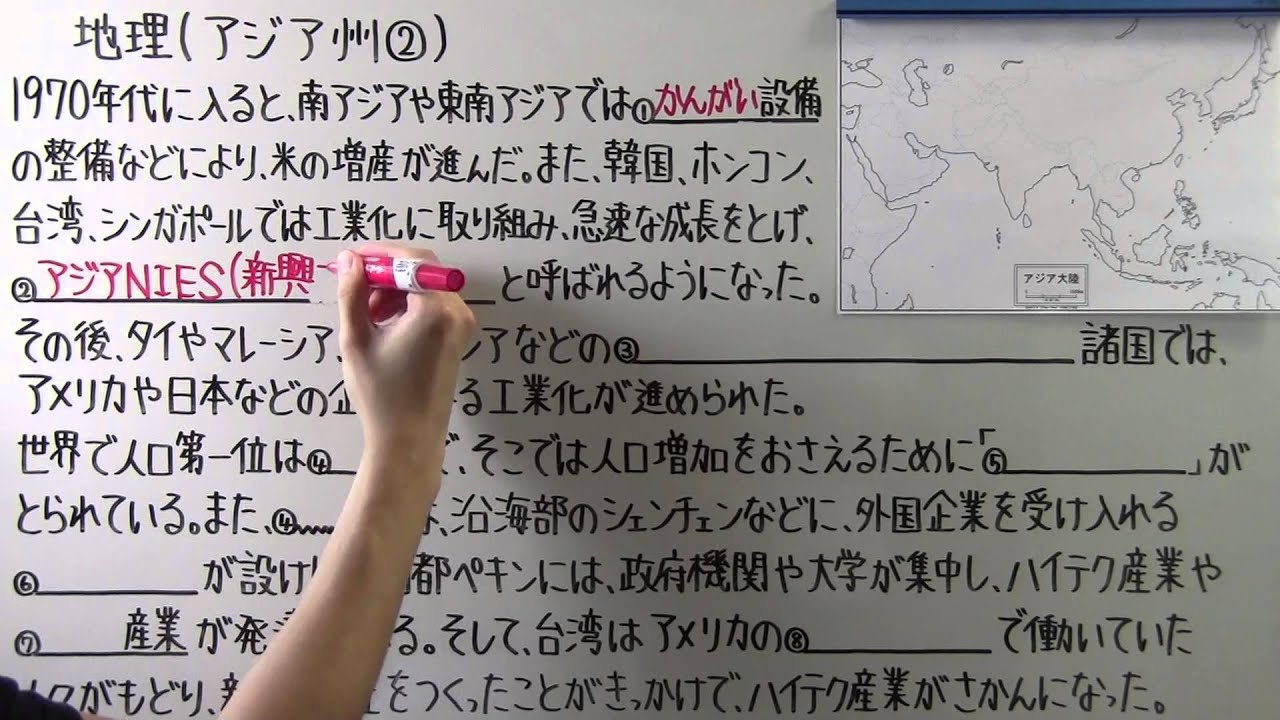 地理(アジア州②)
1970年代に入ると、南アジアや東南アジアでは①かんがい設備
の整備などにより、米の増産が進んだ。また、韓国、ホンコン、
台湾、シンガポールでは工業化に取り組み、急速な成長をとげ、
②アジアNIES(新興 と呼ばれるようになった。
その後、タイやマレーシア、 シアなどの③ 諸国では、
アメリカや日本などの企 る工業化が進められた。
世界で人口第一位は④ で、そこでは人口増加をおさえるために「⑤ 」が
とられている。また、④ は、沿海部のシェンチェンなどに、外国企業を受け入れる
⑥ が設け 都ペキンには、政府機関や大学が集中し、ハイテク産業や
⑦ 産業が発 る。そして、台湾はアメリカの⑧ で働いていた
がもどり、 をつくったことがきっかけで、ハイテク産業がさかんになった。
アジア大陸